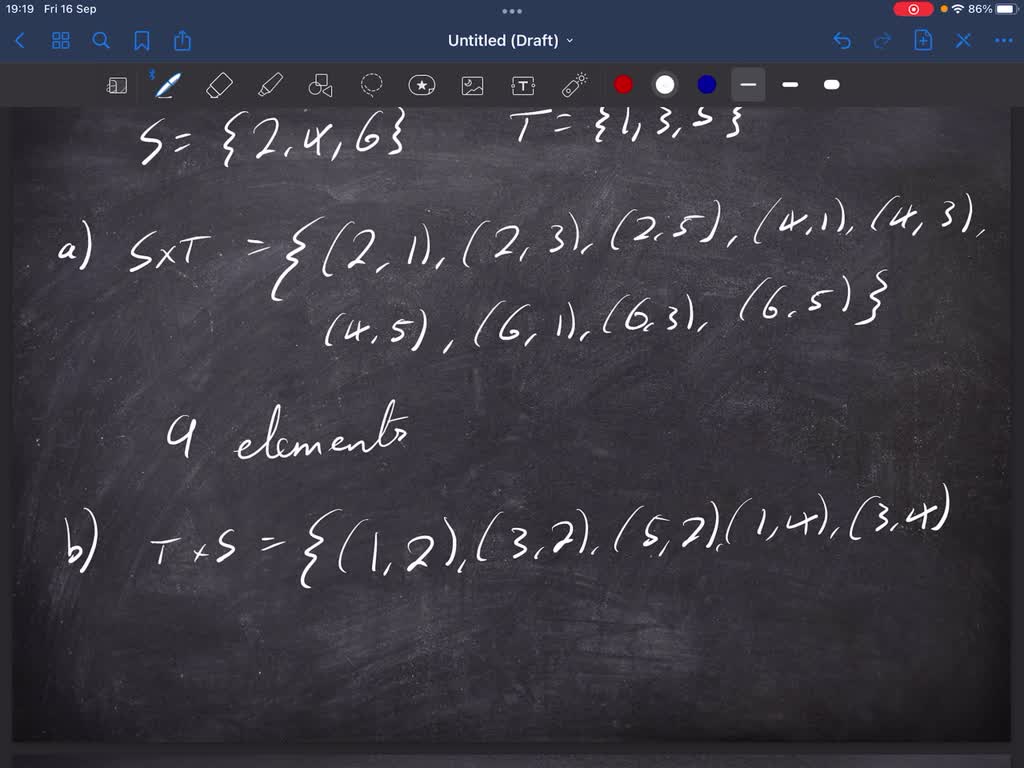 19:19 Fri 16 Sep
86%
Untitled (Draft)
T
S = {2, 4, 6} T = {1, 3, 5}
a) S×T = {(2, 1), (2, 3), (2, 5), (4, 1), (4, 3),
(4, 5), (6, 1), (6, 3), (6, 5)}
9 elements
b) T×S = {(1, 2), (3, 2), (5, 2), (1, 4), (3, 4)